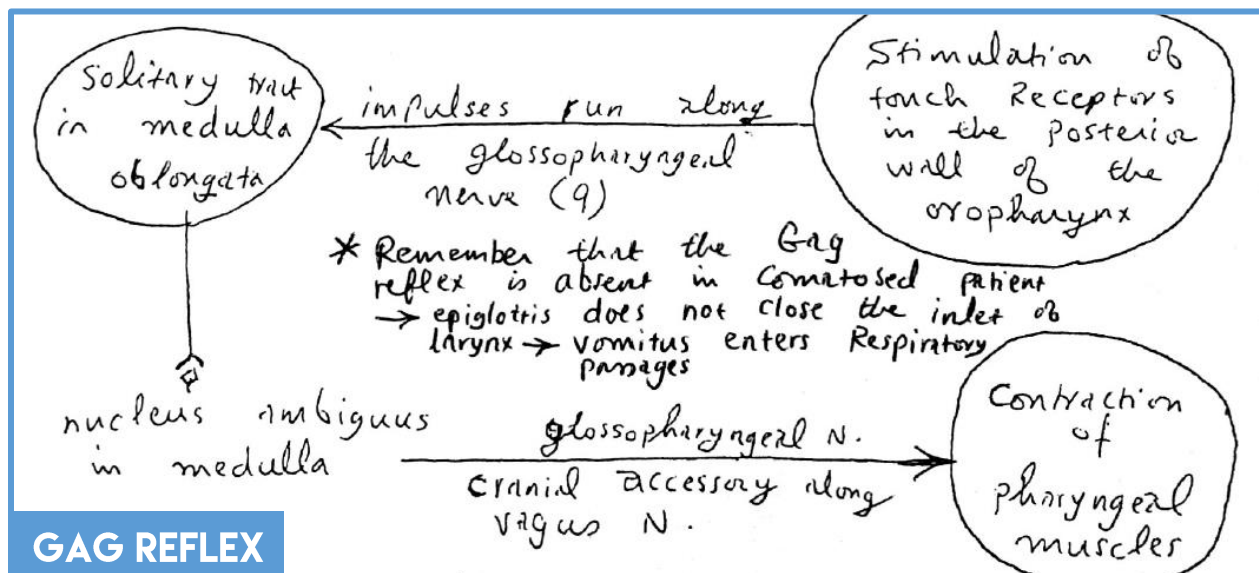 Solitary tract
in medulla
oblongata
impulses run along
the glossopharyngeal
nerve (9)
Stimulation of
touch Receptors
in the posterior
wall of the
oropharynx
* Remember that the Gag
reflex is absent in Comatosed patient
→ epiglottis does not close the inlet of
larynx → vomitus enters Respiratory
passages
nucleus ambiguus
in medulla
glossopharyngeal N.
cranial accessory along
vagus N.
Contraction
of
pharyngeal
muscles
GAG REFLEX